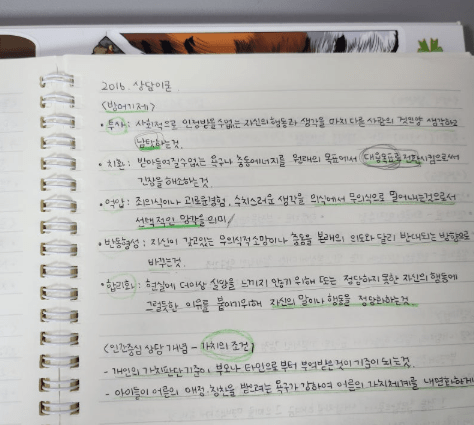 2016. 상담이론
<방어기제>
• 투사: 사회적으로 인정받을 수 없는 자신의 행동과 생각을 마치 다른 사람의 것인양 생각하고
남탓하는 것.
• 치환: 받아들여질 수 없는 욕구나 충동에너지를 원래의 목표에서 대용목표로 전환시킴으로써
긴장을 해소하는 것
• 억압: 죄의식이나 괴로운 경험, 수치스러운 생각을 의식에서 무의식으로 밀어내는 것으로서
선택적인 망각을 의미
• 반동형성: 자신이 갖고있는 무의식적 소망이나 충동을 본래의 의도와 달리 반대되는 방향으로
바꾸는 것.
• 합리화: 현실에 더이상 실망을 느끼지 않기 위해 또는 정당하지 못한 자신의 행동에
그럴듯한 이유를 붙이기위해 자신의 말이나 행동을 정당화하는 것.
<인간중심 상담 개념 - 가치의 조건>
- 개인의 가치판단 기준이 부모나 타인으로 부터 부여받은 것이 기준이 되는 것.
- 아이들이 어른의 애정, 칭찬을 받으려는 욕구가 강하여 어른의 가치체계를 내면화하게